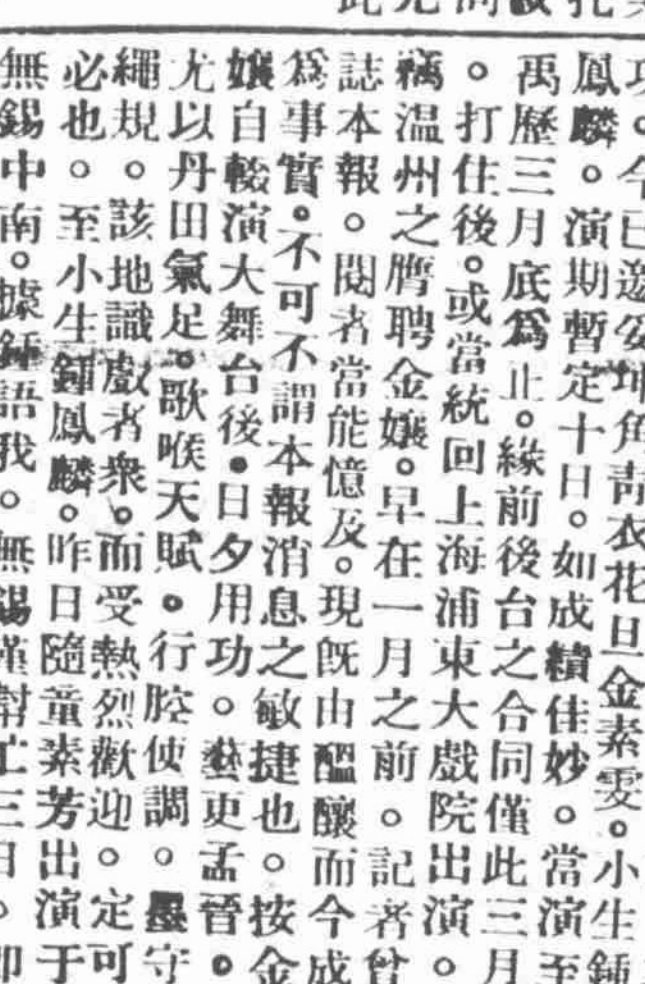 功。今已邀妥坤角靑衣花旦金素雯。小生鍾
鳳麟。演期暫定十日。如成績佳妙。當演至
禹歷三月底爲止。緣前後台之合同僅此三月
。打住後。或當統回上海浦東大戲院出演。
温州之膺聘金孃。早在一月之前。記者曾
誌本報。閱者當能憶及。現旣由醞釀而今成
爲事實。不可不謂本報消息之敏捷也。按金
孃自輟演大舞台後。日夕用功。藝更孟晉。
尤以丹田氣足。歌喉天賦。行腔使調。墨守
繩規。該地識戲者衆。而受熱烈歡迎。定可
必也。至小生鍾鳳麟。昨日隨童素芳出演于
無錫中南。據鍾語我。無錫僅幇忙三日。即